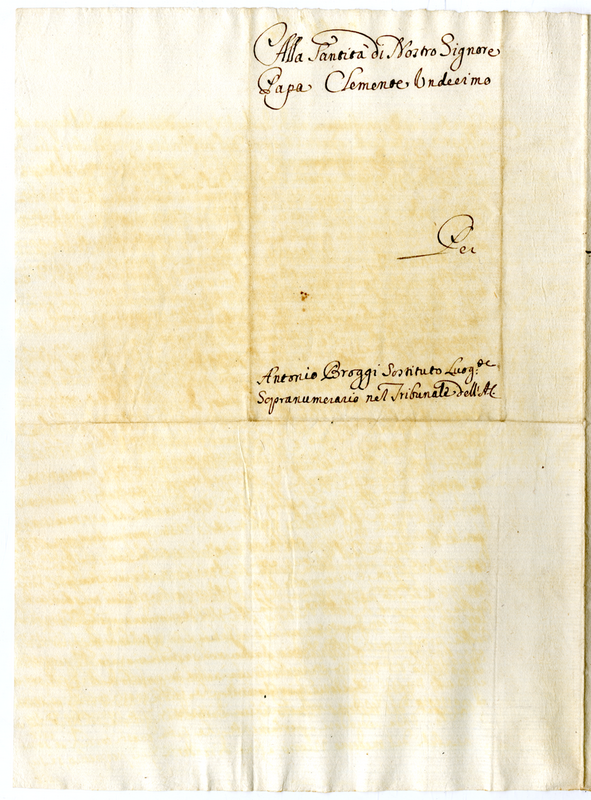 Alla Santità di Nostro Signore
Papa Clemente Undecimo
Per
Antonio Broggi Sostituto Luog.te
Sopranumerario nel Tribunale dell'AC.